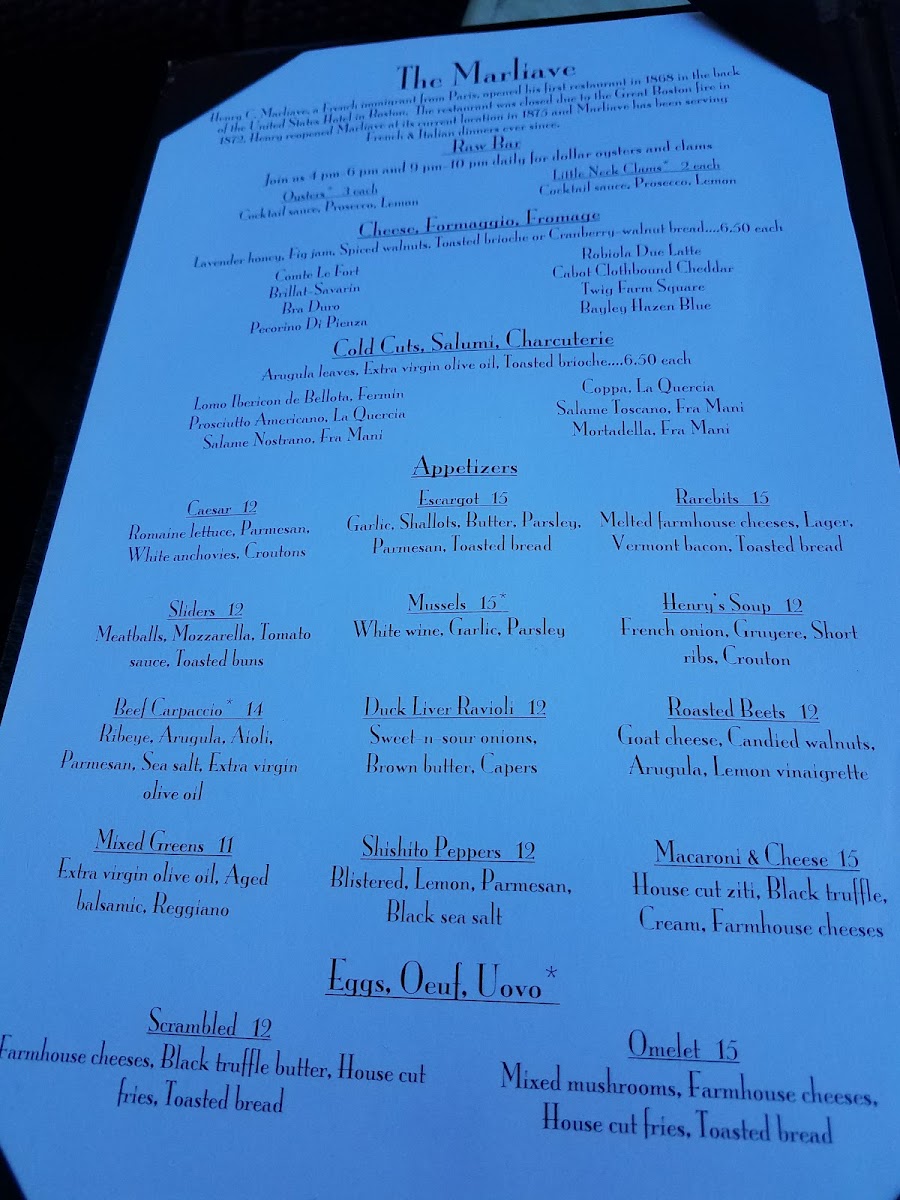 The Marliave
Henry C. Marliave, a French immigrant from Paris, opened his first restaurant in 1868 in the back
of the United States Hotel in Boston. The restaurant was closed due to the Great Boston fire in
1872. Henry reopened Marliave at its current location in 1875 and Marliave has been serving
French & Italian dinners ever since.
Raw Bar
Join us 4 pm-6 pm and 9 pm-10 pm daily for dollar oysters and clams
Oysters* 3 each
Cocktail sauce, Prosecco, Lemon
Little Neck Clams* 2 each
Cocktail sauce, Prosecco, Lemon
Cheese, Formaggio, Fromage
Lavender honey, Fig jam, Spiced walnuts, Toasted brioche or Cranberry-walnut bread....6.50 each
Comte Le Fort
Brillat-Savarin
Bra Duro
Pecorino Di Pienza
Robiola Due Latte
Cabot Clothbound Cheddar
Twig Farm Square
Bayley Hazen Blue
Cold Cuts, Salumi, Charcuterie
Arugula leaves, Extra virgin olive oil, Toasted brioche....6.50 each
Lomo Ibericon de Bellota, Fermin
Prosciutto Americano, La Quercia
Salame Nostrano, Fra Mani
Coppa, La Quercia
Salame Toscano, Fra Mani
Mortadella, Fra Mani
Appetizers
Caesar 12
Romaine lettuce, Parmesan,
White anchovies, Croutons
Escargot 15
Garlic, Shallots, Butter, Parsley,
Parmesan, Toasted bread
Rarebits 15
Melted farmhouse cheeses, Lager,
Vermont bacon, Toasted bread
Sliders 12
Meatballs, Mozzarella, Tomato
sauce, Toasted buns
Mussels 15*
White wine, Garlic, Parsley
Henry's Soup 12
French onion, Gruyere, Short
ribs, Crouton
Beef Carpaccio* 14
Ribeye, Arugula, Aioli,
Parmesan, Sea salt, Extra virgin
olive oil
Duck Liver Ravioli 12
Sweet-n-sour onions,
Brown butter, Capers
Roasted Beets 12
Goat cheese, Candied walnuts,
Arugula, Lemon vinaigrette
Mixed Greens 11
Extra virgin olive oil, Aged
balsamic, Reggiano
Shishito Peppers 12
Blistered, Lemon, Parmesan,
Black sea salt
Macaroni & Cheese 15
House cut ziti, Black truffle,
Cream, Farmhouse cheeses
Eggs, Oeuf, Uovo*
Scrambled 12
Farmhouse cheeses, Black truffle butter, House cut
fries, Toasted bread
Omelet 15
Mixed mushrooms, Farmhouse cheeses,
House cut fries, Toasted bread